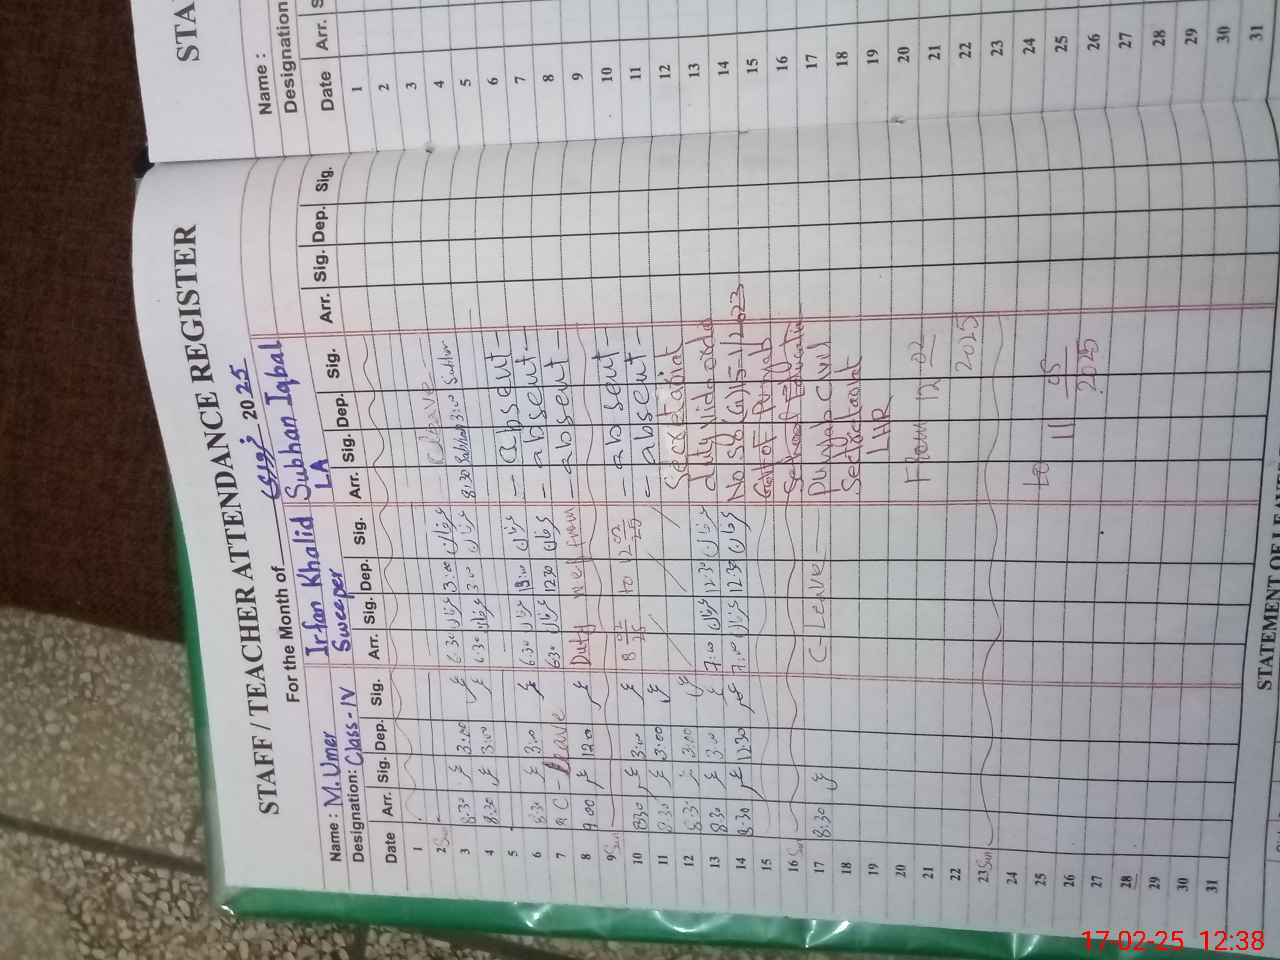 STAFF / TEACHER ATTENDANCE REGISTER
For the Month of فروری 2025
Name : M. Umer
Irfan Khalid
Subhan Iqbal
Designation: Class-IV
Sweeper
LA
Date Arr. Sig. Dep. Sig. Arr. Sig. Dep. Sig. Arr. Sig. Dep. Sig. Arr. Sig. Dep. Sig.
1
2 Sun
3 8:30 3:00 6:30 3:00 C Leave
4 8:30 3:00 6:30 3:00 8:30 Subhan 3:00 Subhan
5
6 8:30 3:00 6:30 13:00 - absent -
7 C - Leave 6:30 12:30 - absent -
8 9:00 1200 Duty w.e.f from - absent -
9 Sun
10 8:30 3:00 8 02 25 to 12 02 25 - absent -
11 8:30 3:00 - absent -
12 8:30 3:00 Secretariat
13 8:30 3:00 7:00 12:30 duty vide order
14 8:30 12:30 7:00 12:30 No SO (G) 15-1/2023
15 Govt of Punjab
16 Sun School Education
17 8:30 C - Leave - Punjab Civil
18 Secretariat
19 LHR
20
21 From 12-02
22 2025
23 Sun
24
25 to 11 05
26 2025
27
28
29
30
31
STATEMENT OF LEAVE
STA
Name :
Designation
Date Arr. S
1
2
3
4
5
6
7
8
9
10
11
12
13
14
15
16
17
18
19
20
21
22
23
24
25
26
27
28
29
30
31
17-02-25 12:38